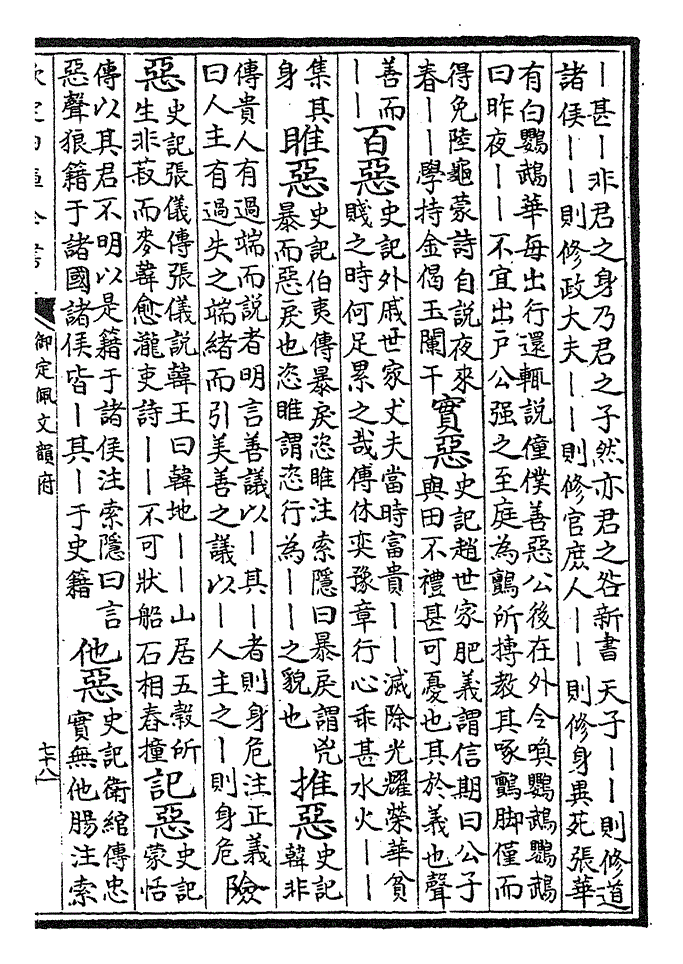 丨甚丨非君之身乃君之子然亦君之咎新書 天子丨丨則修道
諸侯丨丨則修政大夫丨丨則修官庶人丨丨則修身異死張華
有白鸚鵡華每出行還輒說僮僕善惡公後在外令喚鸚鵡鸚鵡
曰昨夜丨丨不宜出戶公强之至庭為鸇所搏教其啄鸇脚僅而
得免陸龜蒙詩自說夜來
春丨丨學持金偈玉闌干
實惡
史記趙世家肥義謂信期曰公子
與田不禮甚可憂也其於義也聲
善而
丨丨
百惡
史記外戚世家丈夫當時富貴丨丨滅除光耀榮華貧
賤之時何足累之哉傅休奕豫章行心乖甚水火丨丨
集其
身
睢惡
史記伯夷傳暴戾恣睢注索隱曰暴戾謂兇
暴而惡戾也恣睢謂恣行為丨丨之貌也
推惡
史記
韓非
傳貴人有過端而說者明言善議以丨其丨者則身危注正義
曰人主有過失之端緒而引美善之議以丨人主之丨則身危
險
惡
史記張儀傳張儀說韓王曰韓地丨丨山居五穀所
生非菽而麥韓愈瀧吏詩丨丨不可狀船石相舂撞
記惡
史記
蒙恬
傳以其君不明以是籍于諸侯注索隱曰言
惡聲狼籍于諸國諸侯皆丨其丨于史籍
他惡
史記衛綰傳忠
實無他腸注索
御定佩文韻府
七十八